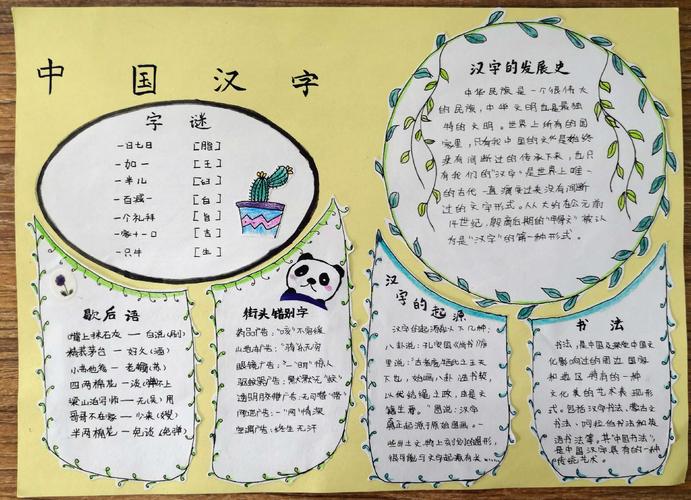 中国汉字
字谜
一日七日 [脂]
一加一 [王]
一半儿 [臼]
一百减一 [白]
一个礼拜 [旨]
一家十一口 [吉]
一只牛 [生]
汉字的发展史
中华民族是一个很伟大
的民族，中华文明也是最独
特的文明。世界上所有的国
家里，只有我中国的文化是始终
没有间断过的传承下来，也只
有我们的“汉字”是世界上唯一
的古代一直演变过来没有间断
过的文字形式。从大约在公元前
14世纪，殷商后期的“甲骨文”被认
为是“汉字”的第一种形式。
歇后语
墙上抹石灰—白说(刷)
精装茅台—好久(酒)
四两棉花—谈(弹)不上
梁山泊军师—无(吴)用
哥哥不在家—少来(嫂)
半两棉花—免谈(免弹)
街头错别字
药品广告：“咳”不容缓
山地车广告：“骑”乐无穷
眼镜广告：一“明”惊人
驱蚊器广告：默默无“蚊”
透明胶带广告：无可“带”
网吧广告：一“网”情深
空调广告：终生无汗
汉字的起源
汉字的起源有以下几种：
八卦说：孔安国《尚书》序
里说：“古者庖牺氏之王天
下也，始画八卦，造书契，
以代结绳之政，由是文
籍生焉。”图说：汉字
真正起源于原始图画。一
些出土文物上刻划的图形，
很可能与文字起源有关
书法
书法，是中国及深受中国文
化影响过的周边国家
和地区特有的一种
文化美的艺术表现形
式。包括汉字书法、蒙古文
书法、阿拉伯书法和英
语书法等。其“中国书法”，
是中国汉字具有的一种
传统艺术。